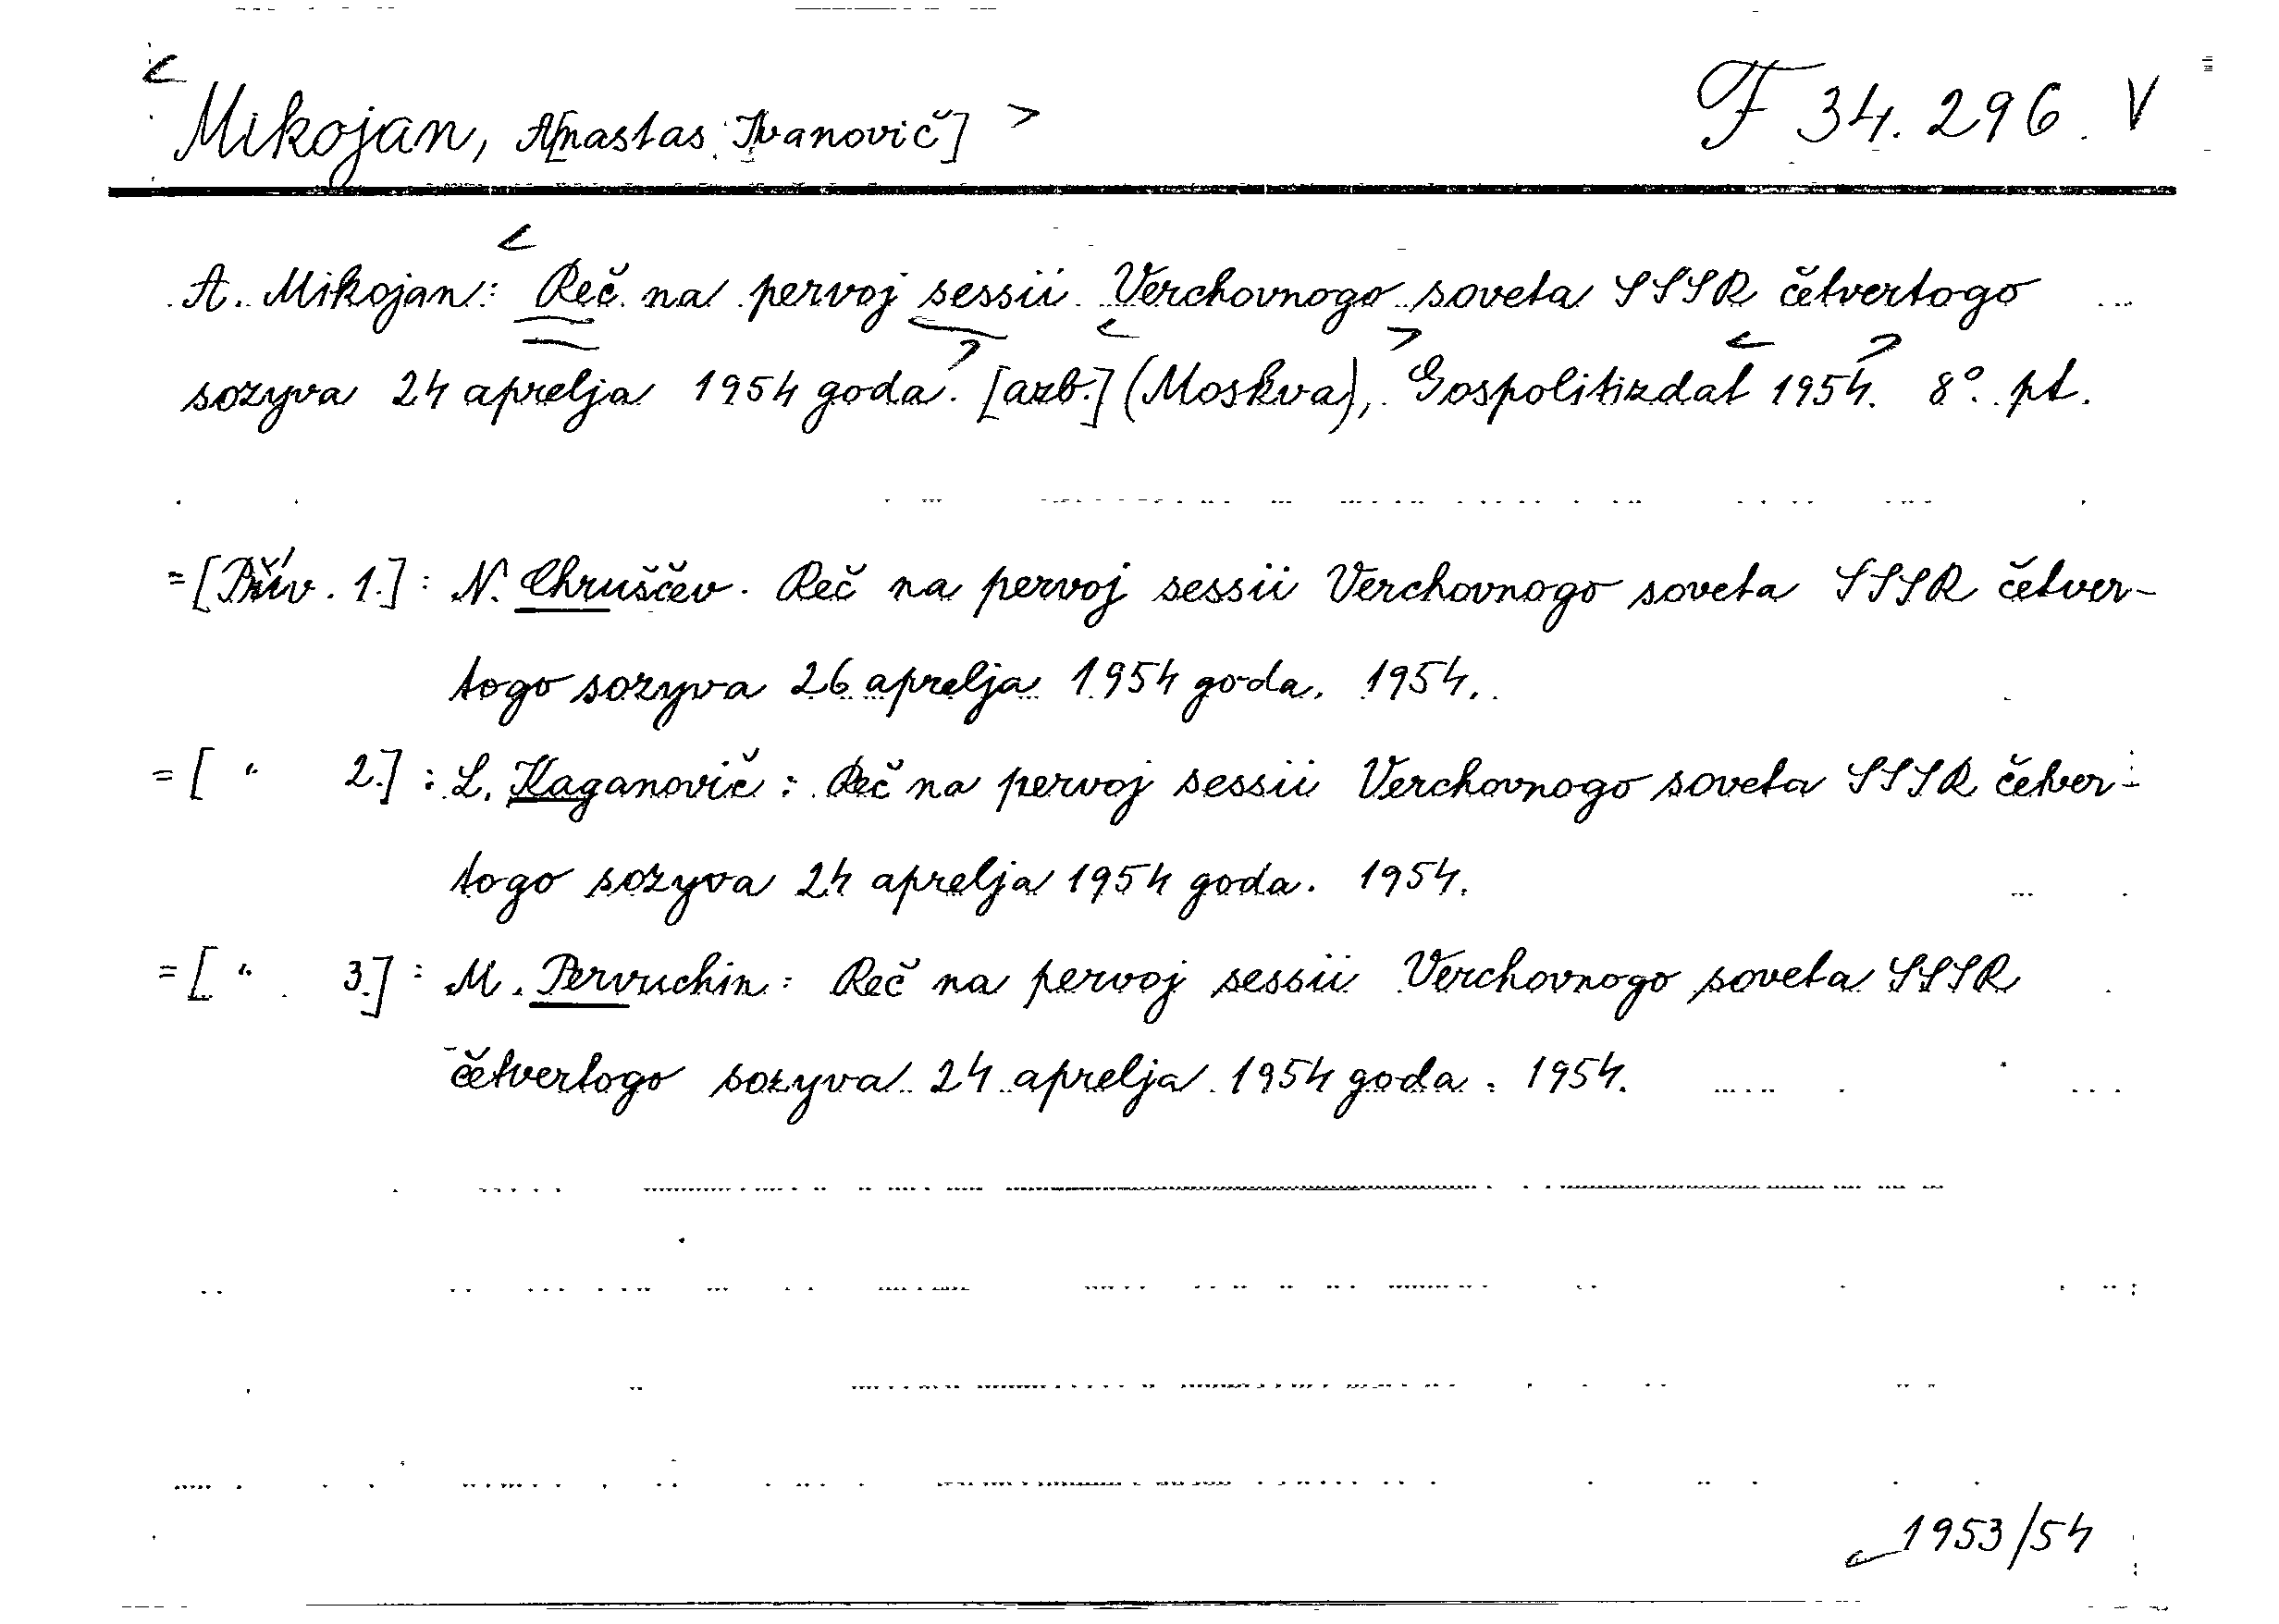 <Mikojan, A[nastas Ivanovič]> F 34.296. V
A. Mikojan: <Reč na pervoj sessii Verchovnogo soveta SSSR četvertogo
sozyva 24 aprelja 1954 goda.> [azb.] <(Moskva),> Gospolitizdat <1954>. 8°. pt.
=[Přív. 1.]: N. Chruščev. Reč na pervoj sessii Verchovnogo soveta SSSR četver-
togo sozyva 26 aprelja 1954 goda. 1954.
=[ " 2.]: L. Kaganovič: Reč na pervoj sessii Verchovnogo soveta SSSR četver-
togo sozyva 24 aprelja 1954 goda. 1954.
=[ " 3.]: M. Pervuchin: Reč na pervoj sessii Verchovnogo soveta SSSR
četvertogo sozyva 24 aprelja 1954 goda. 1954.
1953/54